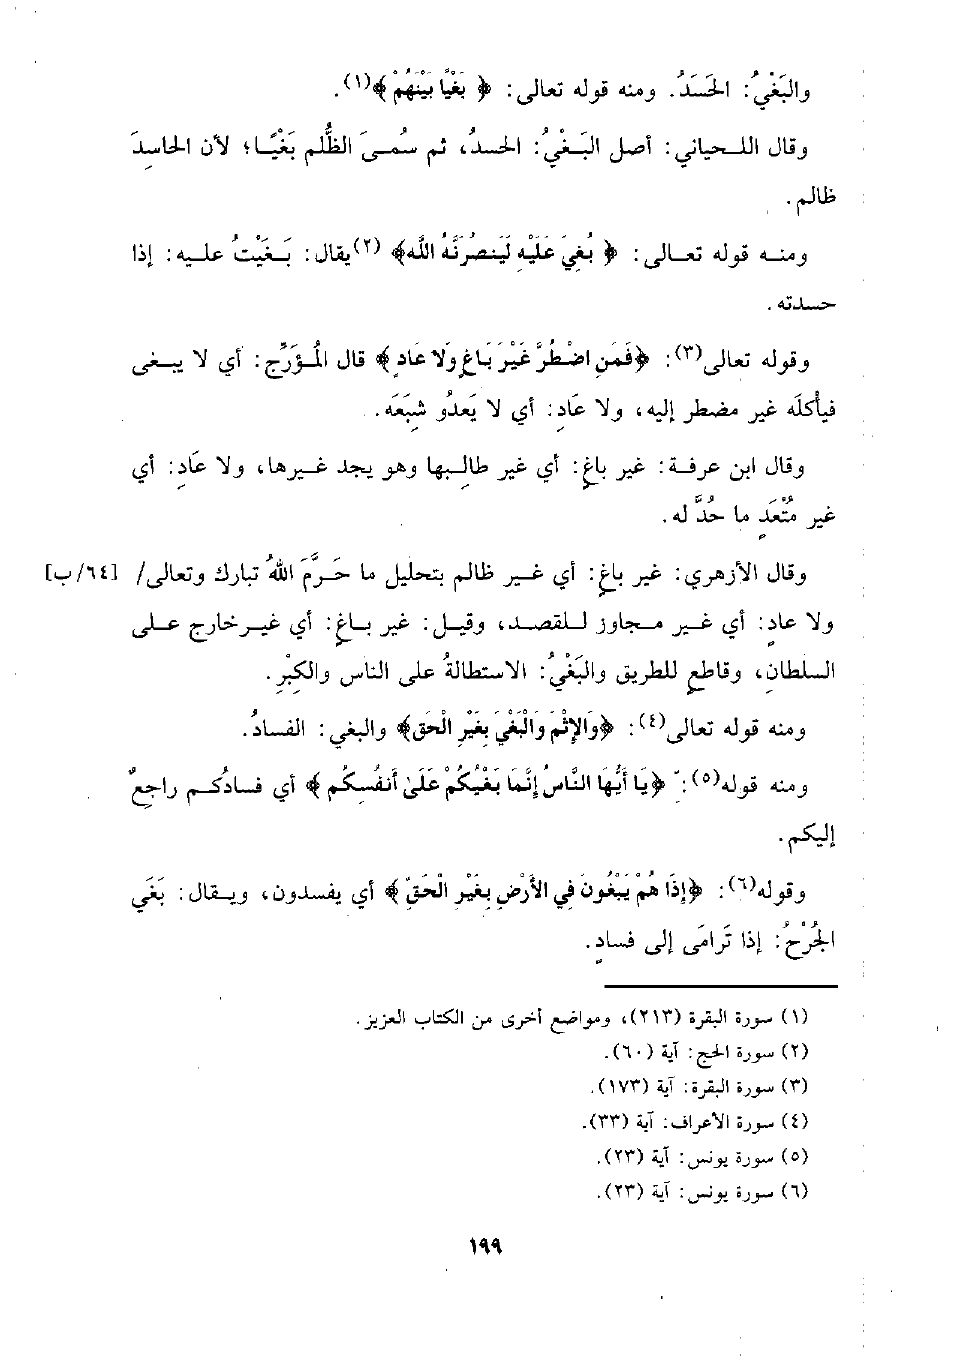 والبَغْيُ: الحَسَدُ. ومنه قوله تعالى: ﴿ بَغْيًا بَيْنَهُمْ ﴾(١).
وقال اللحياني: أصل البَغْيُ: الحسدُ، ثم سُمىَ الظُّلم بَغْيًا؛ لأن الحاسِدَ
ظالم.
ومنه قوله تعالى: ﴿ بُغِيَ عَلَيْهِ لَيَنصُرَنَّهُ اللَّه﴾ (٢)يقال: بَغَيْتُ عليه: إذا
حسدته.
وقوله تعالى(٣): ﴿فَمَنِ اضْطُرَّ غَيْرَ بَاغٍ وَلا عَادٍ ﴾ قال المُؤَرِّج: أي لا يبغى
فيأكلَه غير مضطر إليه، ولا عَادٍ: أي لا يَعدُو شِبَعَه.
وقال ابن عرفة: غير باغٍ: أي غير طالِبها وهو يجد غيرها، ولا عَادٍ: أي
غير مُتْعَدٍ ما حُدَّ له.
وقال الأزهري: غير باغٍ: أي غير ظالم بتحليل ما حَرَّمَ اللهُ تبارك وتعالى/ [٦٤/ب]
ولا عادٍ: أي غير مجاوز للقصد، وقيل: غير باغٍ: أي غير خارج على
السلطانِ، وقاطعٍ للطريق والبَغْيُ: الاستطالةُ على الناس والكِبْرِ.
ومنه قوله تعالى(٤): ﴿وَالإِثْمَ وَالْبَغْيَ بِغَيْرِ الْحَق﴾ والبغي: الفسادُ.
ومنه قوله(٥): ﴿يَا أَيُّهَا النَّاسُ إِنَّمَا بَغْيُكُمْ عَلَىٰ أَنفُسِكُم ﴾ أي فسادُكم راجِعٌ
إليكم.
وقوله(٦): ﴿إِذَا هُمْ يَبْغُونَ فِي الأَرْضِ بِغَيْرِ الْحَقِّ ﴾ أي يفسدون، ويقال: بَغَي
الجُرْحُ: إذا تَرامَى إلى فسادٍ.
(١) سورة البقرة (٢١٣)، ومواضع أخرى من الكتاب العزيز.
(٢) سورة الحج: آية (٦٠).
(٣) سورة البقرة: آية (١٧٣).
(٤) سورة الأعراف: آية (٣٣).
(٥) سورة يونس: آية (٢٣).
(٦) سورة يونس: آية (٢٣).
١٩٩